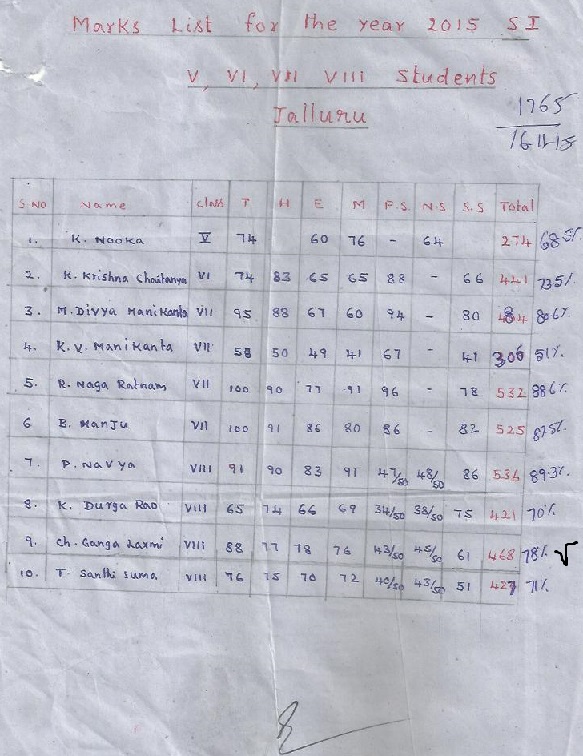 Marks List for the year 2015 S I
V, VI, VII VIII Students
Jalluru
1765
S.NO Name class T H E M P.S. N.S S.S Total
1. K. Nooka V 74 60 76 - 64 274 68.5%
2. K. Krishna Chaitanya VI 74 83 65 65 88 - 66 441 73.5%
3. M. Divya Manikanta VII 95 88 67 60 94 - 80 80.6%
4. K.V. Manikanta VII 58 50 49 41 67 - 41 306 51%
5. R. Naga Ratnam VII 100 90 77 91 96 - 78 532 88.6%
6 B. Manju VII 100 91 86 80 86 - 82 525 87.5%
7. P. Navya VIII 91 90 83 91 47/50 48/50 86 536 89.3%
8. K. Durga Rao VIII 65 74 66 69 34/50 38/50 75 421 70%
9. Ch. Ganga Laxmi VIII 88 77 78 76 43/50 45/50 61 468 78% √
10. T. Santhi Suma VIII 76 75 70 72 40/50 43/50 51 427 71%